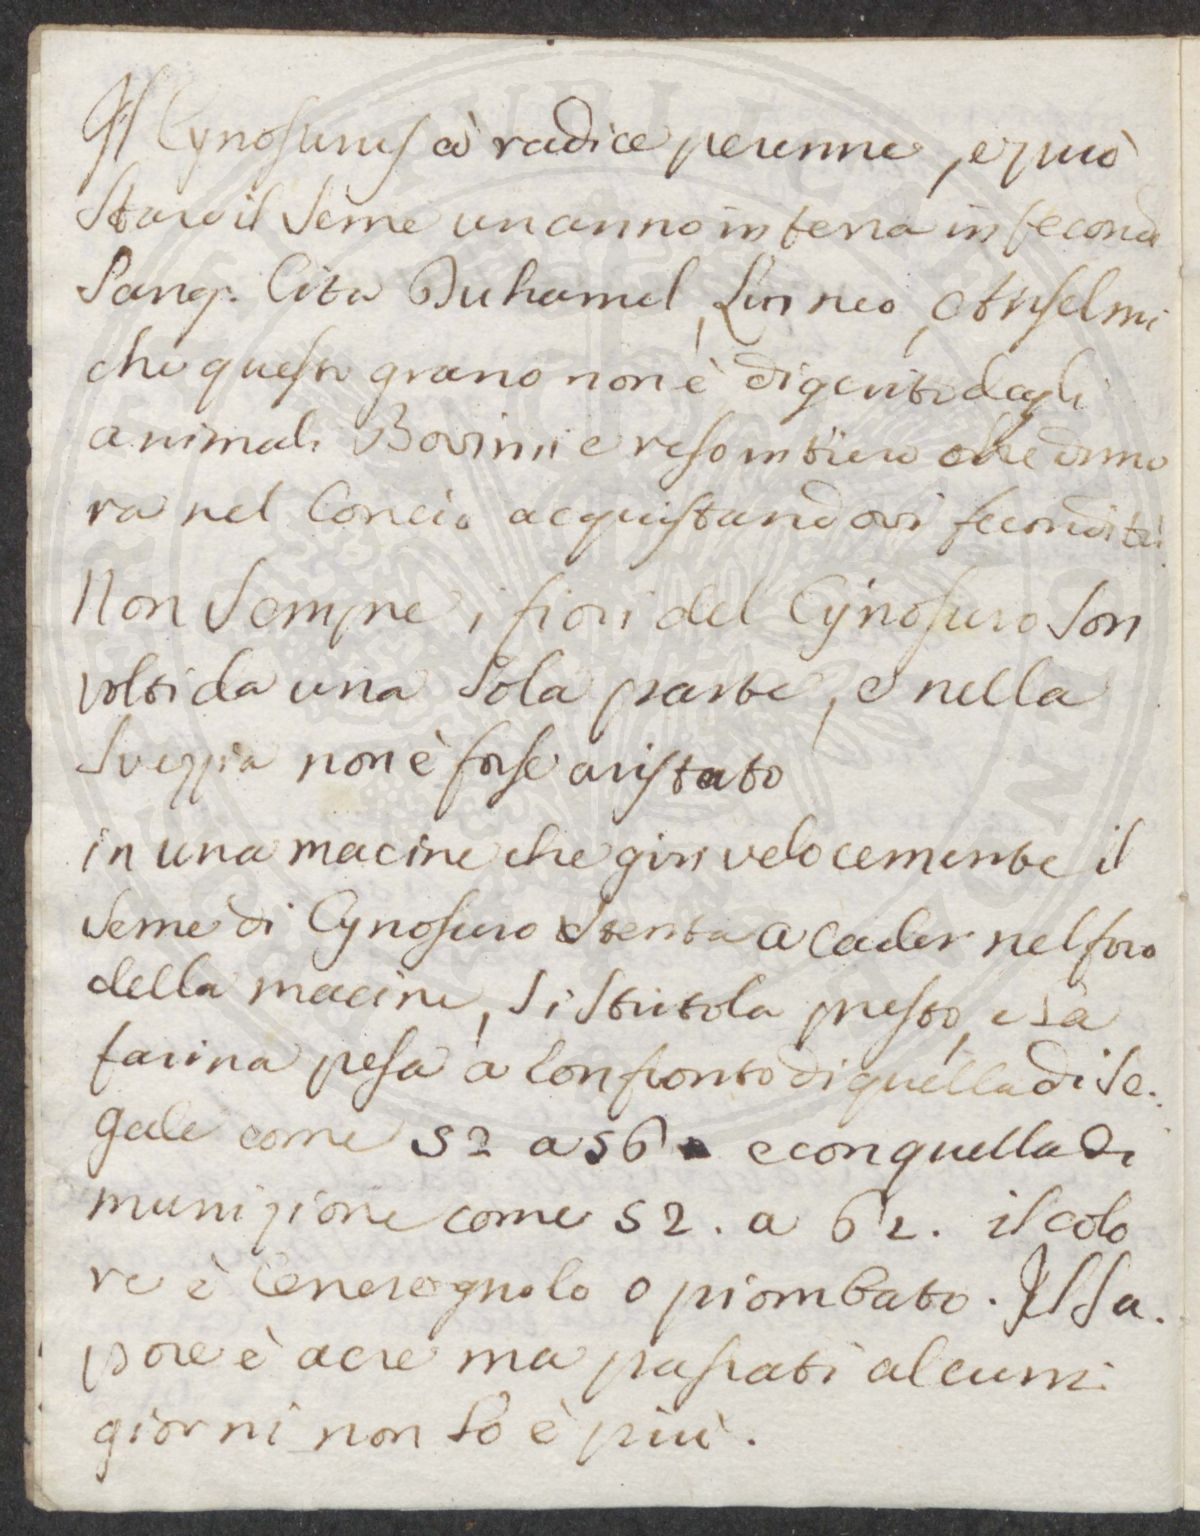 Il Cynosurus à radice perenne, e può
Stare il Seme un anno in terra infecond
Sang. Cita Duhamel, Linneo, Anselmi
che questo grano non è digerito dagli
animali Bovini e reso intiero che dimo
ra nel Concio acquistandovi fecondità
Non Sempre i fiori del Cynosuro Son
volti da una Sola parte, e nella
Svezzia non è forse aristato
in una macine che giri velocemente il
Seme di Cynosuro Stenta a cader nel foro
della macine, Si Stritola presto, e La
farina pesa a Confronto di quella di Se.
gale come 52 a 56 e con quella di
munizione come 52. a 62. il colo
re è Cenerognolo o piombato. Il Sa.
pore è acre ma passati alcuni
giorni non Lo è più.